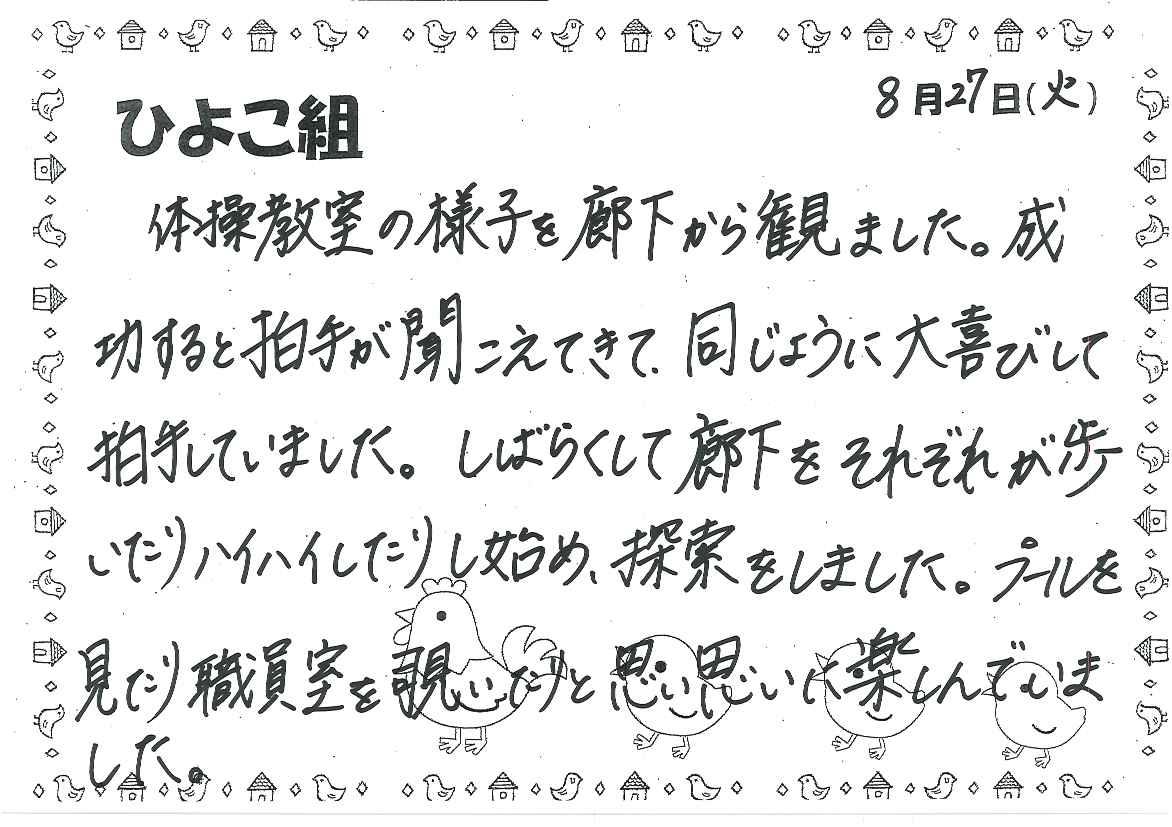 8月27日(火)
ひよこ組
体操教室の様子を廊下から観ました。成
功すると拍手が聞こえてきて、同じように大喜びして
拍手していました。しばらくして廊下をそれぞれが歩
いたりハイハイしたりし始め、探索をしました。プールを
見たり職員室を覗いたりと思い思いに楽しんでいま
した。